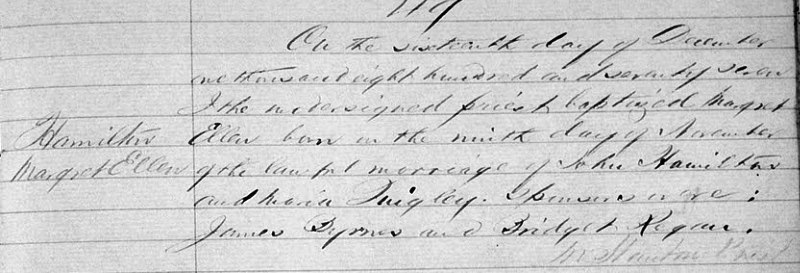 119
On the sixteenth day of December
one thousand eight hundred and seventy seven
I the undersigned priest baptized Margret
Hamilton Ellen born on the ninth day of November
Margret Ellen of the lawful marriage of John Hamilton
and Maria Quigley. Sponsors were:
James Byrnes and Bridget Regan.
M Stanton Priest